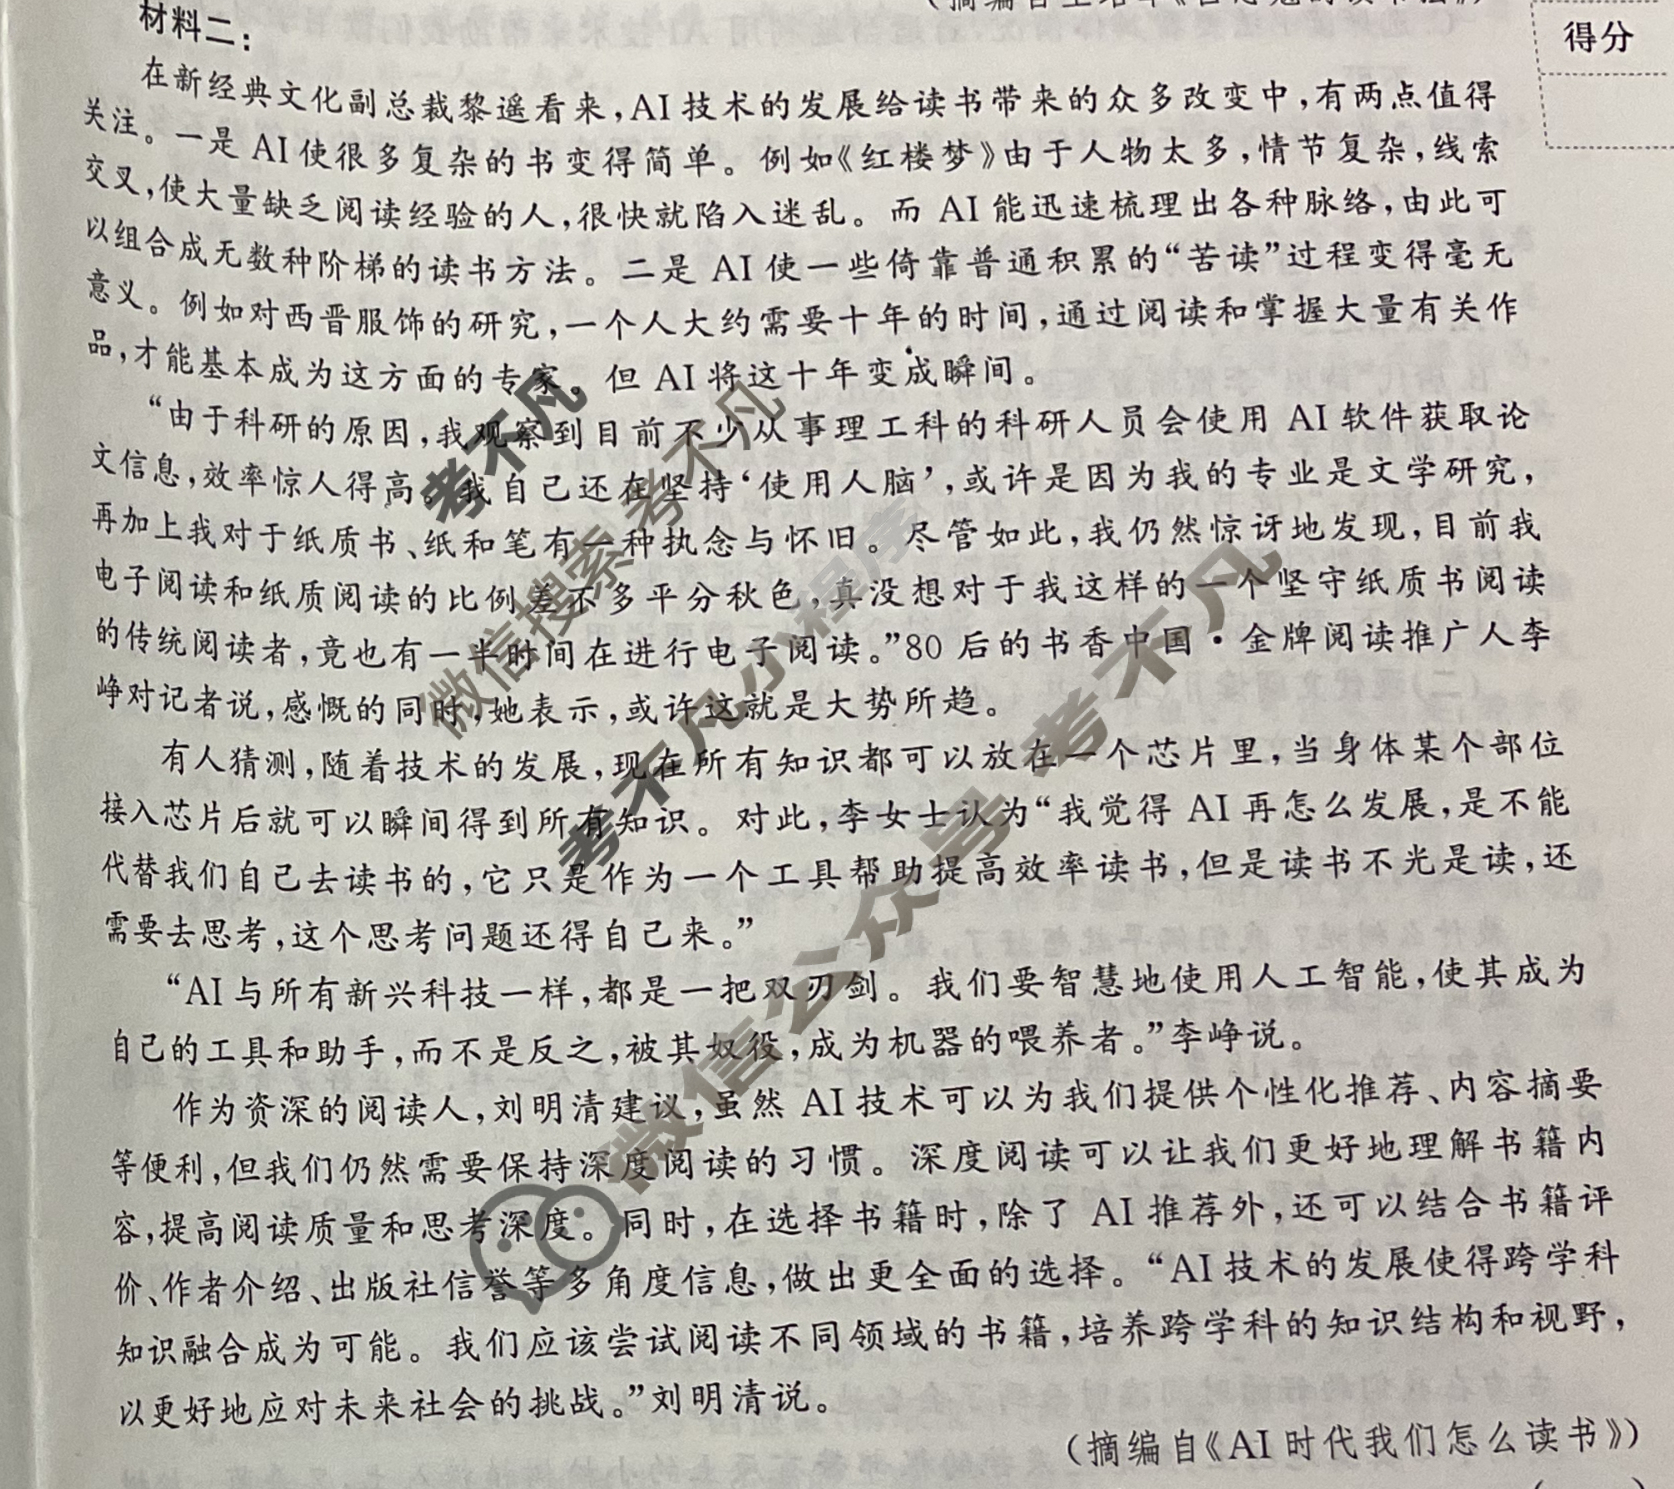 得分
材料二：
在新经典文化副总裁黎遥看来，AI技术的发展给读书带来的众多改变中，有两点值得
关注。一是AI使很多复杂的书变得简单。例如《红楼梦》由于人物太多，情节复杂，线索
交叉，使大量缺乏阅读经验的人，很快就陷入迷乱。而AI能迅速梳理出各种脉络，由此可
以组合成无数种阶梯的读书方法。二是AI使一些倚靠普通积累的“苦读”过程变得毫无
意义。例如对西晋服饰的研究，一个人大约需要十年的时间，通过阅读和掌握大量有关作
品，才能基本成为这方面的专家。但AI将这十年变成瞬间。
“由于科研的原因，我观察到目前不少从事理工科的科研人员会使用AI软件获取论
文信息，效率惊人得高。我自己还在坚持‘使用人脑’，或许是因为我的专业是文学研究，
再加上我对于纸质书、纸和笔有一种执念与怀旧。尽管如此，我仍然惊讶地发现，目前我
电子阅读和纸质阅读的比例差不多平分秋色，真没想对于我这样的一个坚守纸质书阅读
的传统阅读者，竟也有一半时间在进行电子阅读。”80后的书香中国·金牌阅读推广人李
峥对记者说，感慨的同时，她表示，或许这就是大势所趋。
有人猜测，随着技术的发展，现在所有知识都可以放在一个芯片里，当身体某个部位
接入芯片后就可以瞬间得到所有知识。对此，李女士认为“我觉得AI再怎么发展，是不能
代替我们自己去读书的，它只是作为一个工具帮助提高效率读书，但是读书不光是读，还
需要去思考，这个思考问题还得自己来。”
“AI与所有新兴科技一样，都是一把双刃剑。我们要智慧地使用人工智能，使其成为
自己的工具和助手，而不是反之，被其奴役，成为机器的喂养者。”李峥说。
作为资深的阅读人，刘明清建议，虽然AI技术可以为我们提供个性化推荐、内容摘要
等便利，但我们仍然需要保持深度阅读的习惯。深度阅读可以让我们更好地理解书籍内
容，提高阅读质量和思考深度。同时，在选择书籍时，除了AI推荐外，还可以结合书籍评
价、作者介绍、出版社信誉等多角度信息，做出更全面的选择。“AI技术的发展使得跨学科
知识融合成为可能。我们应该尝试阅读不同领域的书籍，培养跨学科的知识结构和视野，
以更好地应对未来社会的挑战。”刘明清说。
（摘编自《AI时代我们怎么读书》）
考不凡
微信搜索 考不凡
考不凡小程序
微信公众号 考不凡